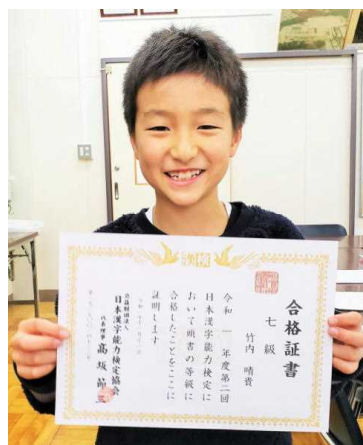 漢検
合格証書
七級
竹内 晴貴
令和 一 年度第二回
日本漢字能力検定に
おいて頭書の等級に
合格したことをここに
証明します
公益財団法人
日本漢字能力検定協会
代表理事 髙坂 節